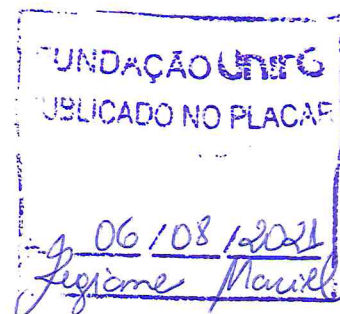 FUNDAÇÃO UnirG
PUBLICADO NO PLACAR
06/08/2021
Regiane Maciel